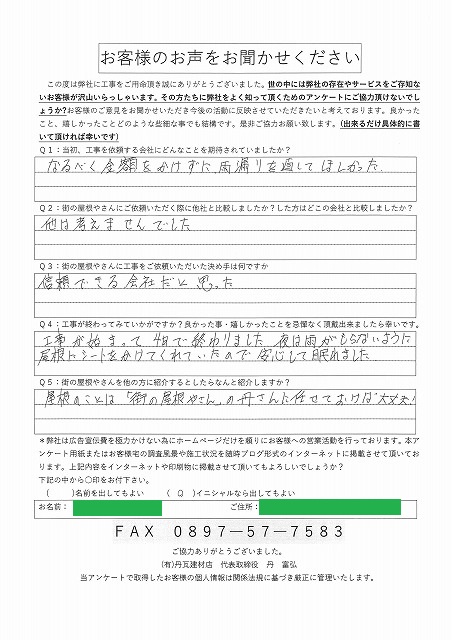 お客様のお声をお聞かせください
この度は弊社に工事をご用命頂き誠にありがとうございました。世の中には弊社の存在やサービスをご存知な
いお客様が沢山いらっしゃいます。その方たちに弊社をよく知って頂くためのアンケートにご協力頂けないでし
ょうか?お客様のご意見をお聞かせいただき今後の活動に反映させていただきたいと考えております。良かった
こと、嬉しかったことどのような些細な事でも結構です。是非ご協力お願い致します。(出来るだけ具体的に書
いて頂ければ幸いです)
Q1:当初、工事を依頼する会社にどんなことを期待されていましたか?
なるべく金額をかけずに雨漏りを直してほしかった.
Q2:街の屋根やさんにご依頼いただく際に他社と比較しましたか?した方はどこの会社と比較しましたか?
他は考えませんでした
Q3:街の屋根やさんに工事をご依頼いただいた決め手は何ですか
信頼できる会社だと思った
Q4:工事が終わってみていかがですか?良かった事・嬉しかったことを忌憚なく頂戴出来ましたら幸いです。
工事が始まって4日で終わりました 夜は雨がもらないように
屋根にシートをかけてくれていたので安心して眠れました
Q5:街の屋根やさんを他の方に紹介するとしたらなんと紹介しますか?
屋根のことは「街の屋根やさん」の丹さんに任せておけば大丈夫!
*弊社は広告宣伝費を極力かけない為にホームページだけを頼りにお客様への営業活動を行っております。本ア
ンケート用紙またはお客様宅の調査風景や施工状況を随時ブログ形式のインターネットに掲載させて頂いてお
ります。上記内容をインターネットや印刷物に掲載させて頂いてもよろしいでしょうか?
下記の中から〇印をお付下さい。
( )名前を出してもよい ( 〇 )イニシャルなら出してもよい
お名前: ご住所:
FAX 0897-57-7583
ご協力ありがとうございました。
(有)丹瓦建材店 代表取締役 丹 富弘
当アンケートで取得したお客様の個人情報は関係法規に基づき厳正に管理いたします。